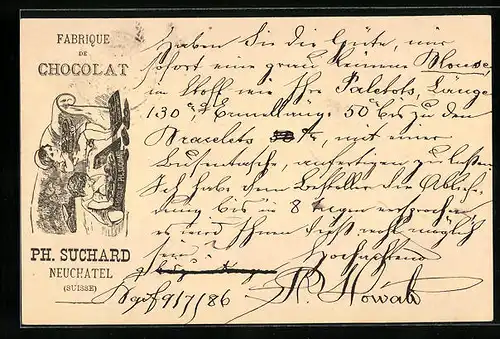 FABRIQUE
DE
CHOCOLAT
PH. SUCHARD
NEUCHATEL
(SUISSE)
Haben Sie die Güte, mir
sofort eine graue Blouse,
im Stoff wie Ihre Paletots, Länge
130 Ärmellänge 50 bis zu den
Bracelets mit einer
Busentasche, anfertigen zu lassen.
Ich habe dem Besteller die
bis in 8 Tagen versprochen
es wird Ihnen möglich
sein.
Hochachtend
9/7/86
Nowak